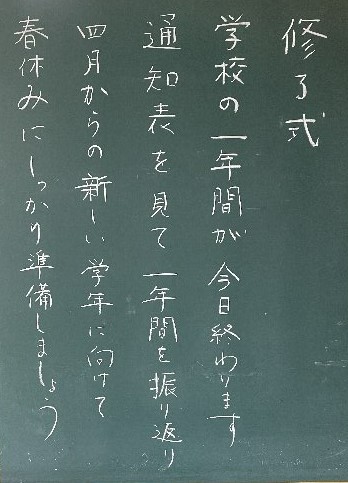 修了式
学校の一年間が今日終わります
通知表を見て一年間を振り返り
四月からの新しい学年に向けて
春休みにしっかり準備しましょう